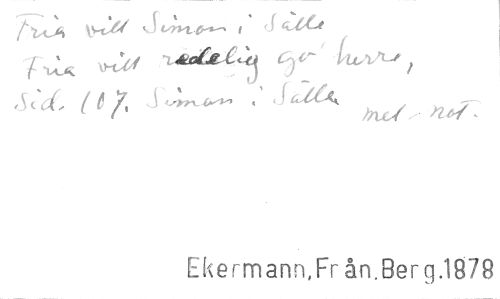 Fria vill Simon i Sälle
Fria vill redelig go' herre,
Sid. 107. Simon i Sälle
mel. not.
Ekermann, Från.Berg.1878